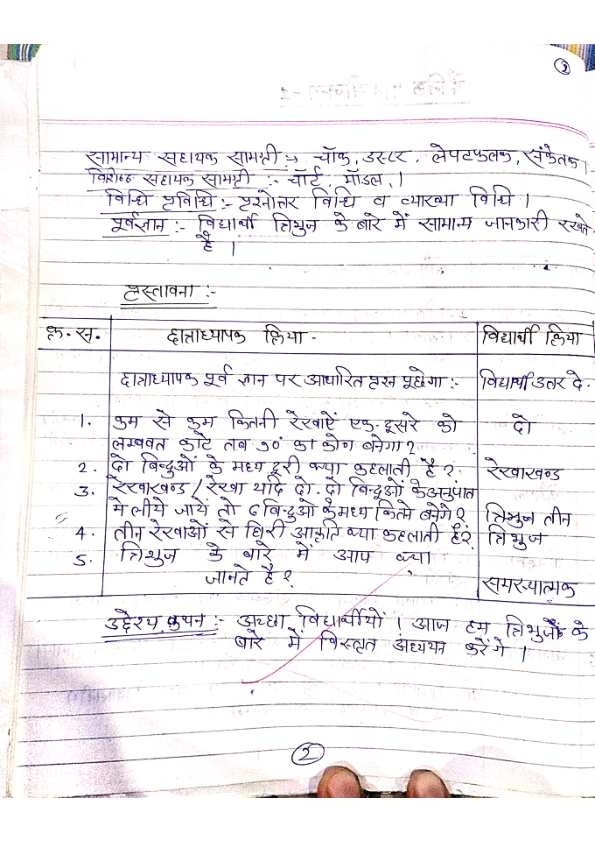 2
सामान्य सहायक सामग्री :- चॉक, डस्टर, लेपटफलक, संकेतक।
विशिष्ट सहायक सामग्री :- चॉर्ट, मॉडल,।
विधि प्रविधि :- प्रश्नोत्तर विधि व व्याख्या विधि।
पूर्वज्ञान :- विद्यार्थी त्रिभुज के बारे में सामान्य जानकारी रखते
है।
प्रस्तावना :-
क्र. स. छात्राध्यापक क्रिया - विद्यार्थी क्रिया
छात्राध्यापक पूर्व ज्ञान पर आधारित प्रश्न पूछेगा :- विद्यार्थी उतर दे.
1. कम से कम कितनी रेखाऐं एक दूसरे को दो
लम्बवत काटे तब ९०° का कोण बनेगा?
2. दो बिन्दुओं के मध्य दूरी क्या कहलाती है? रेखाखण्ड
3. रेखाखण्ड / रेखा यदि दो. दो बिन्दुओं के अनुपात
मे लीये जायें तो बिन्दुओं के मध्य कितने बनेगे? त्रिभुज तीन
4. तीन रेखाओं से घिरी आकृति क्या कहलाती है? त्रिभुज
5. त्रिभुज के बारे में आप क्या
जानते है? समस्यात्मक
उद्देश्य कथन :- अच्छा विद्यार्थीयों। आज हम त्रिभुजों के
बारे में विस्तृत अध्ययन करेंगे।
2